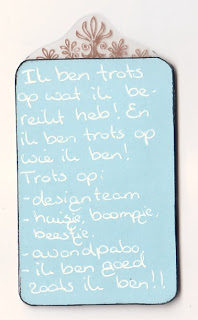 Ik ben trots
op wat ik be-
reikt heb! En
ik ben trots op
wie ik ben!
Trots op:
- designteam
- huisje, boompje,
beestje.
- avondpabo,
- ik ben goed
zoals ik ben!!